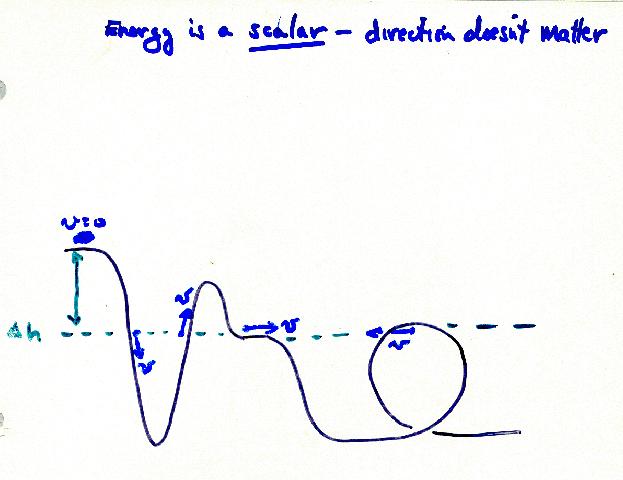 Energy is a scalar – direction doesn't matter
v=0
v
v
v
Δh
v